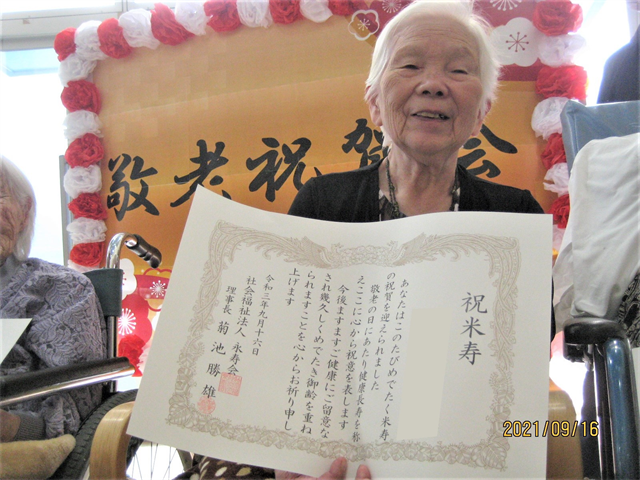 敬老祝賀会
祝米寿
あなたはこのたびめでたく米寿
の祝賀を迎えられました
敬老の日にあたり健康長寿を称
えここに心から祝意を表します
今後ますますご健康にご留意な
され幾久しくめでたき御齢を重ね
られますことを心からお祈り申し
上げます
令和三年九月十六日
社会福祉法人 永寿会
理事長 菊池勝雄
2021/09/16